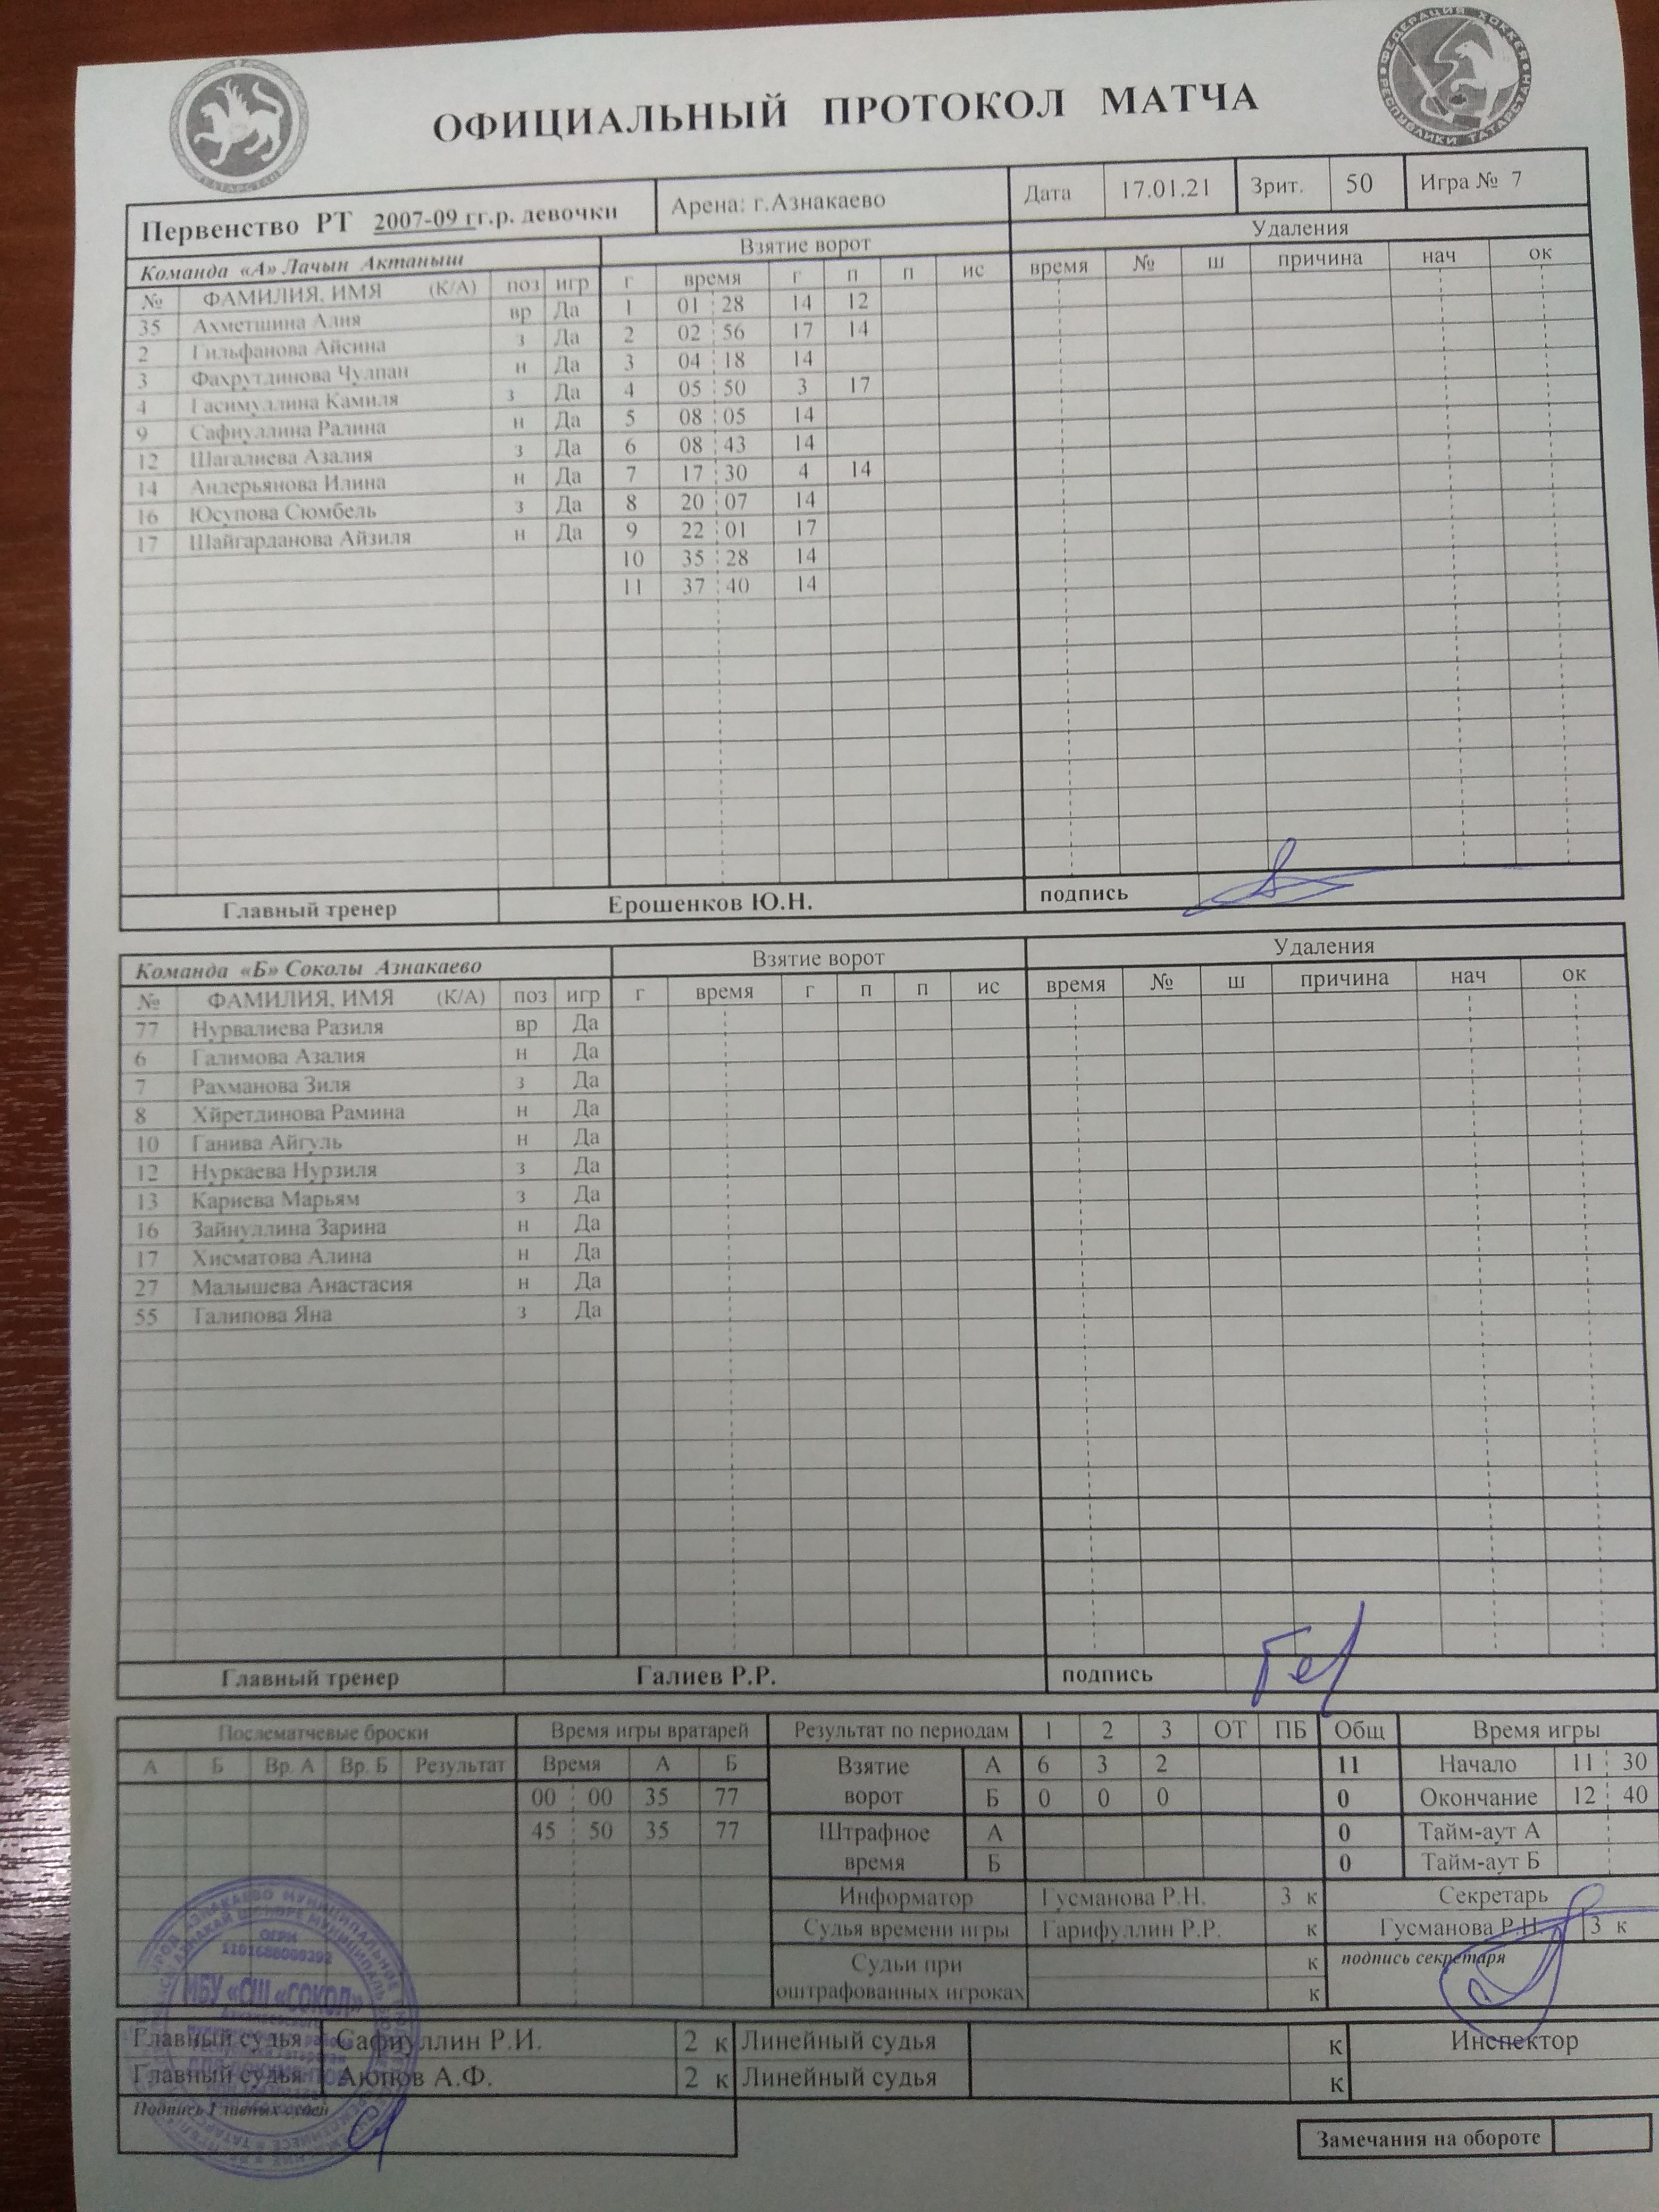 ФЕДЕРАЦИЯ ХОККЕЯ РЕСПУБЛИКИ ТАТАРСТАН
ТАТАРСТАН
ОФИЦИАЛЬНЫЙ ПРОТОКОЛ МАТЧА
Первенство РТ 2007-09 гг.р. девочки Арена: г.Азнакаево Дата 17.01.21 Зрит. 50 Игра № 7
Команда «А» Лачын Актаныш Взятие ворот Удаления
№ ФАМИЛИЯ, ИМЯ (К/А) поз игр г время г п п ис время № ш причина нач ок
35 Ахметшина Алия вр Да 1 01 28 14 12
2 Гильфанова Айсина з Да 2 02 56 17 14
3 Фахрутдинова Чулпан н Да 3 04 18 14
4 Гасимуллина Камиля з Да 4 05 50 3 17
9 Сафиуллина Ралина н Да 5 08 05 14
12 Шагалиева Азалия з Да 6 08 43 14
14 Андерьянова Илина н Да 7 17 30 4 14
16 Юсупова Сюмбель з Да 8 20 07 14
17 Шайгарданова Айзиля н Да 9 22 01 17
10 35 28 14
11 37 40 14
Главный тренер Ерошенков Ю.Н. подпись
Команда «Б» Соколы Азнакаево Взятие ворот Удаления
№ ФАМИЛИЯ, ИМЯ (К/А) поз игр г время г п п ис время № ш причина нач ок
77 Нурвалиева Разиля вр Да
6 Галимова Азалия н Да
7 Рахманова Зиля з Да
8 Хйретдинова Рамина н Да
10 Ганива Айгуль н Да
12 Нуркаева Нурзиля з Да
13 Кариева Марьям з Да
16 Зайнуллина Зарина н Да
17 Хисматова Алина н Да
27 Малышева Анастасия н Да
55 Галипова Яна з Да
Главный тренер Галиев Р.Р. подпись
Послематчевые броски Время игры вратарей Результат по периодам 1 2 3 ОТ ПБ Общ Время игры
А Б Вр. А Вр. Б Результат Время А Б Взятие ворот А 6 3 2 11 Начало 11 30
00 00 35 77 Б 0 0 0 0 Окончание 12 40
45 50 35 77 Штрафное время А 0 Тайм-аут А
Б 0 Тайм-аут Б
Информатор Гусманова Р.Н. 3 к Секретарь
Судья времени игры Гарифуллин Р.Р. к Гусманова Р.Н. 3 к
Судьи при оштрафованных игроках к подпись секретаря
к
МБУ «СШ «СОКОЛ»
Главный судья Сафиуллин Р.И. 2 к Линейный судья к Инспектор
Главный судья Аюпов А.Ф. 2 к Линейный судья к
Подпись Главных судей
Замечания на обороте